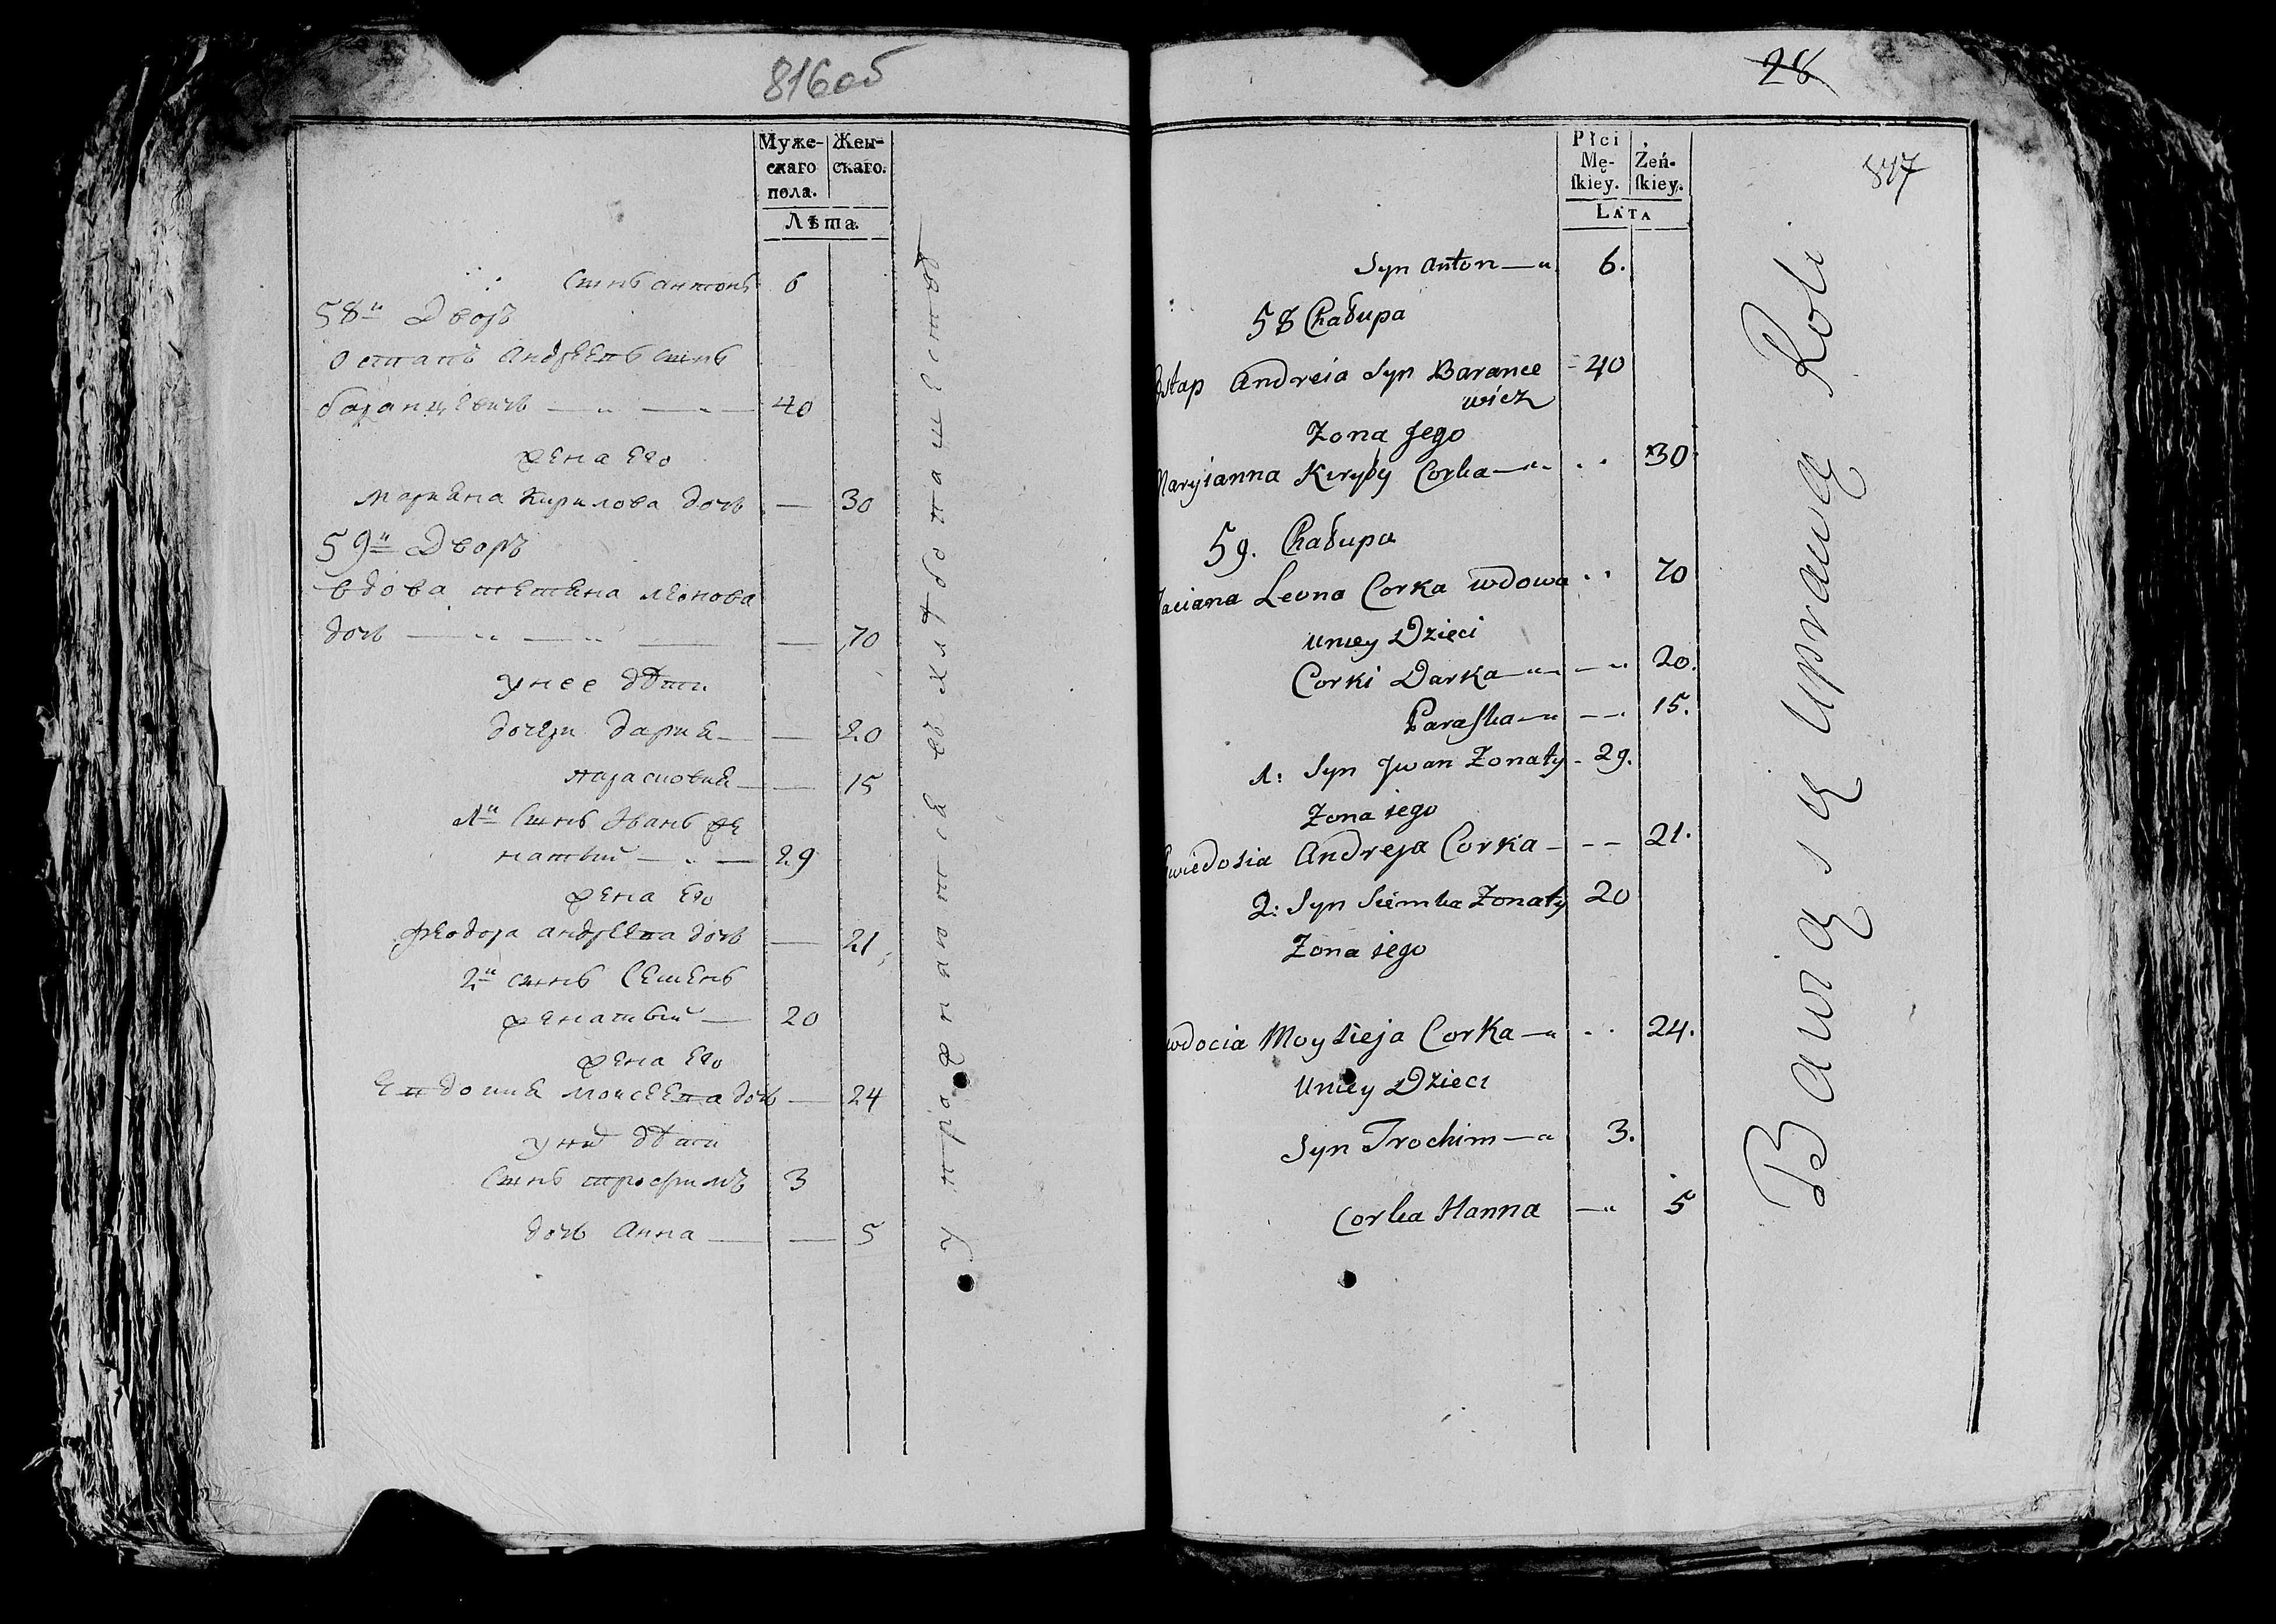 816об
Муже-
скаго
пола.
Жен-
скаго.
Лѣта.
Сынъ антонъ 6
58й Дворъ
Остапъ Андреевъ сынъ
баранцевичъ — „ — „ — 40
жена его
Марьяна Кирилова дочь — 30
59й Дворъ
вдова тетяна леонова
дочь — „ — „ — — 70
у нее дѣти
дочери дария — — 20
парасковия — — 15
1й Сынъ Иванъ же
натый — „ — 29
жена его
феодора андреева дочь — 21
2й сынъ Семенъ
женатый — 20
жена его
Евдокия моисеева дочь — 24
у нихъ дѣти
Сынъ трофимъ 3
дочь Анна — — 5
упражняются въ хлѣбопашествѣ
28
817
Płci
Mę-
skiey.
Żeń-
skiey.
LATA
Syn Anton —„ 6.
58 Chałupa
Ostap Andreia Syn Barance 40
wicz
Zona Jego
Maryianna Kiryły Corka —„ .. 30
59. Chałupa
Taciana Leona Corka wdowa .. 70
U niey Dzieci
Corki Darka —„ —„ 20.
Paraska —„ —„ 15.
1: Syn Jwan Zonaty - 29.
Zona iego
Chwiedosia Andreja Corka - - — 21.
2: Syn Siemka Zonaty 20
Zona iego
Awdocia Moysieja Corka —„ .. 24.
U niey Dzieci
Syn Trochim —„ 3.
Corka Hanna —„ 5
Bawią się Uprawą Roli